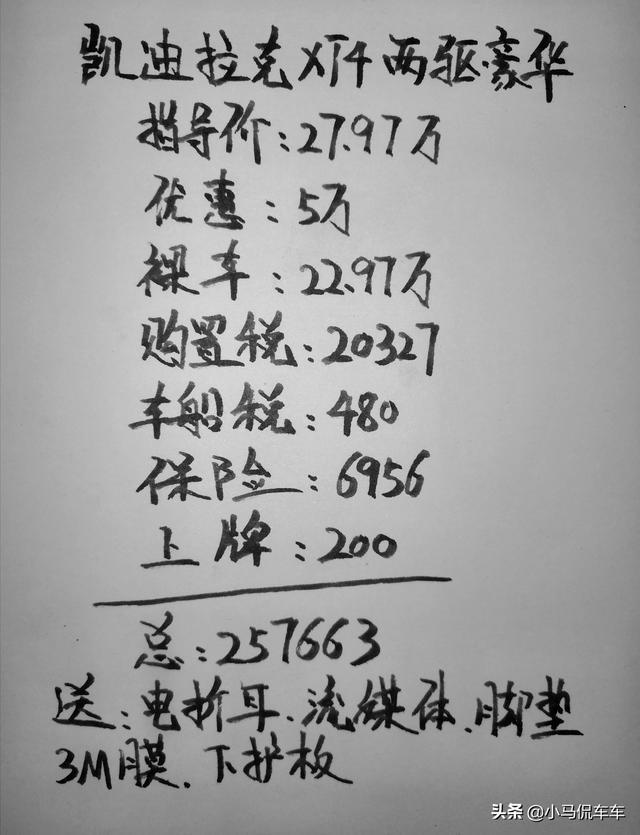 凯迪拉克XT4两驱豪华
指导价:27.97万
优惠:5万
裸车:22.97万
购置税:20327
车船税:480
保险:6956
上牌:200
总:257663
送:电折耳、流媒体、脚垫
3M膜、下护板
头条 @小马侃车车